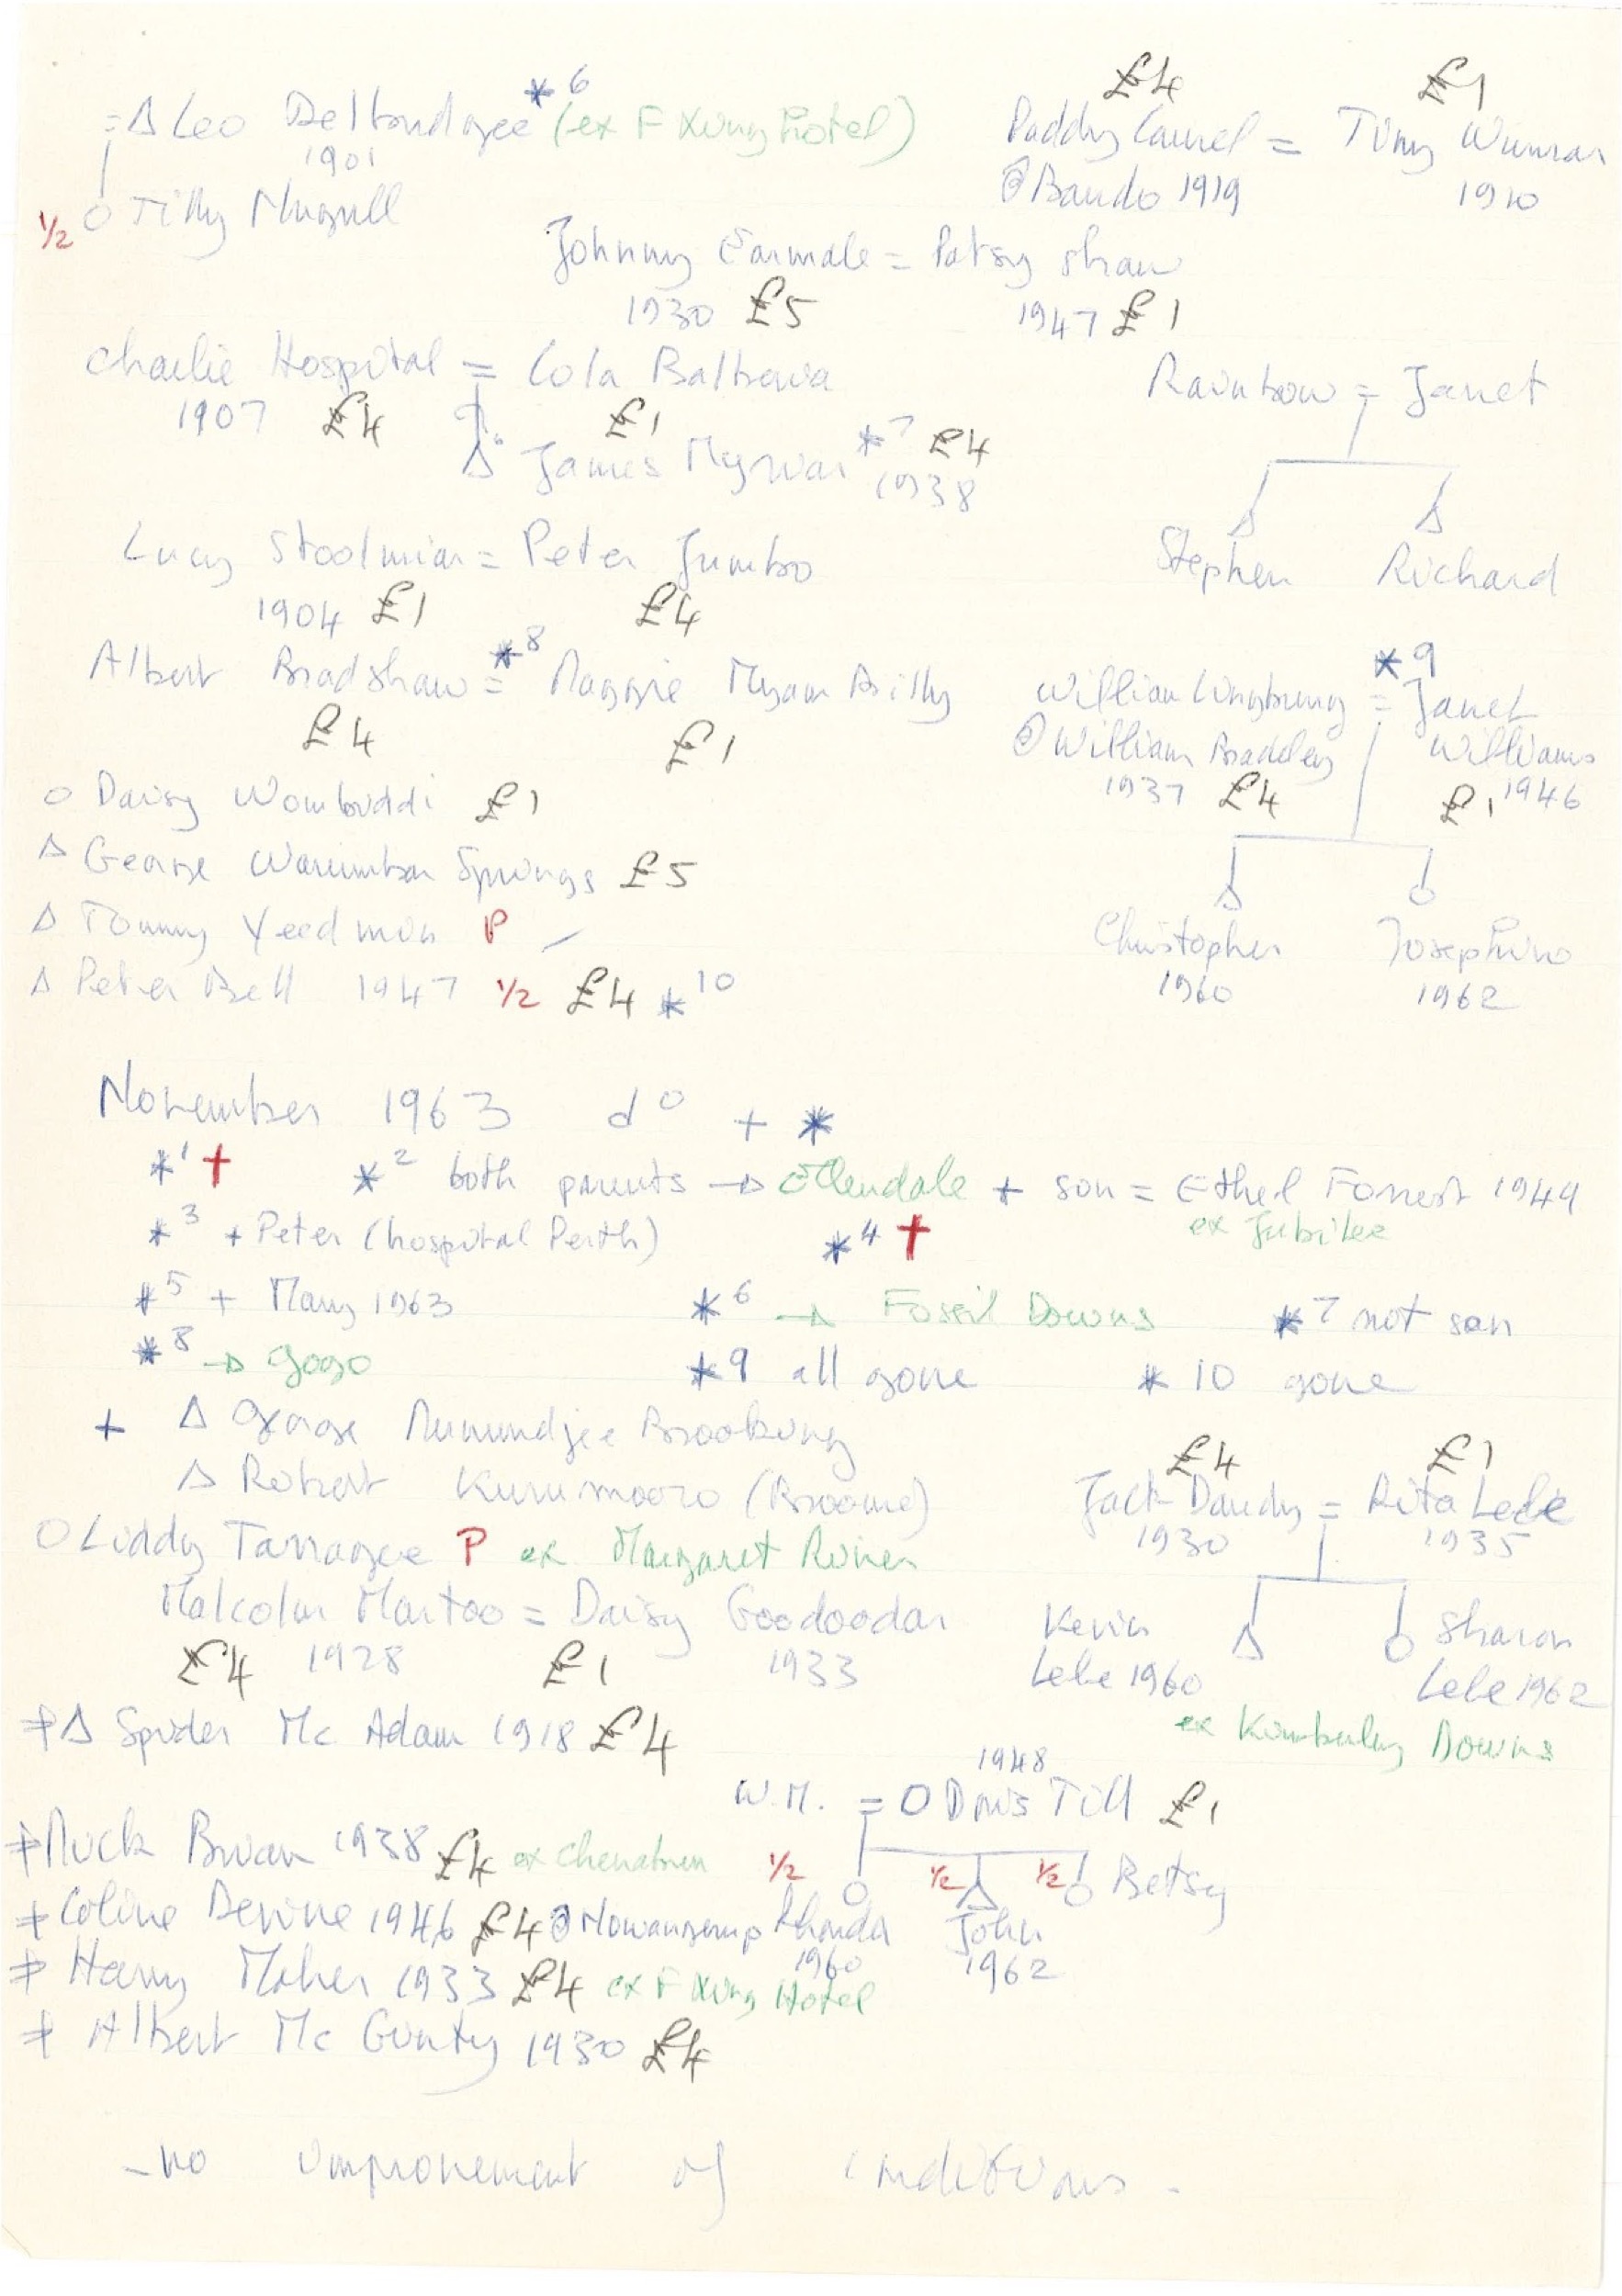 = Δ Leo *6 (ex F Xing Hotel)
1901
1/2 O Tilly
£4 £1
Paddy Camel = Tiny
@ Bando 1919 1910
Johnny = Patsy Shaw
1930 £5 1947 £1
Charlie Hospital = Lola
1907 £4 £1
Δ James *7 £4
1938
Rainbow = Janet
Δ Δ
Stephen Richard
Lucy = Peter Jumbo
1904 £1 £4
Albert Bradshaw = *8 Maggie Billy
£4 £1
*9
William = Janet
@ William Bradley Williams
1937 £4 £1 1946
Δ O
Christopher Josephine
1960 1962
O Daisy £1
Δ George Springs £5
Δ Tommy P –
Δ Peter Bell 1947 1/2 £4 *10
November 1963 do + *
*1 † *2 both parents → Ellendale + son = Ethel Forrest 1949
ex Jubilee
*3 + Peter (hospital Perth) *4 †
*5 + Mary 1963 *6 → Fossil Downs *7 not son
*8 → Gogo *9 all gone *10 gone
+ Δ George Brooking
Δ Robert (Broome)
O Liddy P ex Margaret River
£4 £1
Jack Dandy = Rita Lebe
1930 1935
Kevin Δ O Sharon
Lebe 1960 Lebe 1962
ex Kimberley Downs
Malcolm Martoo = Daisy Goodoodar
£4 1928 £1 1933
+ Δ Spider Mc Adam 1918 £4
1948
W.M. = O Doris Till £1
1/2 O 1/2 Δ 1/2 O Betsy
Rhonda John
1960 1962
+ 1938 £4 ex
+ Coline 1946 £4 @
+ Harry Maher 1933 £4 ex F Xing Hotel
+ Albert Mc Ginty 1930 £4
– no improvement of conditions .